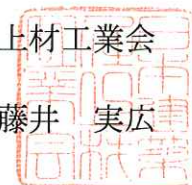 上材工業会
藤井　実広